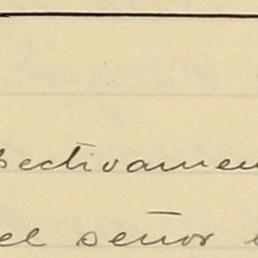 pectivamen
el señor